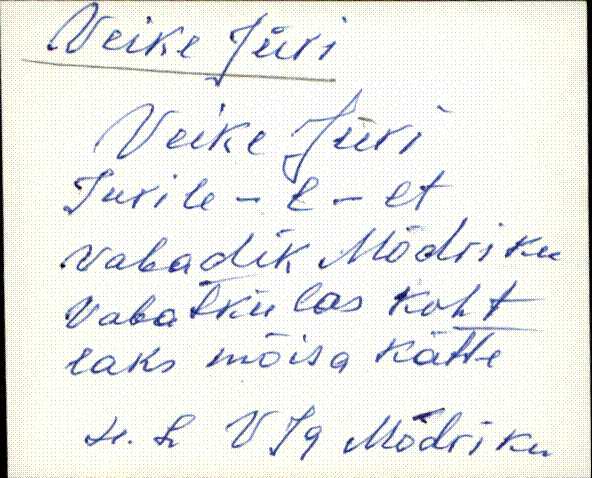 Veike Jüri
Veike Jüri
Jurile - l - et
vabadik Mõdriku
Vabatkülas koht
laks mõisa kätte
H. L VJg Mõdriku